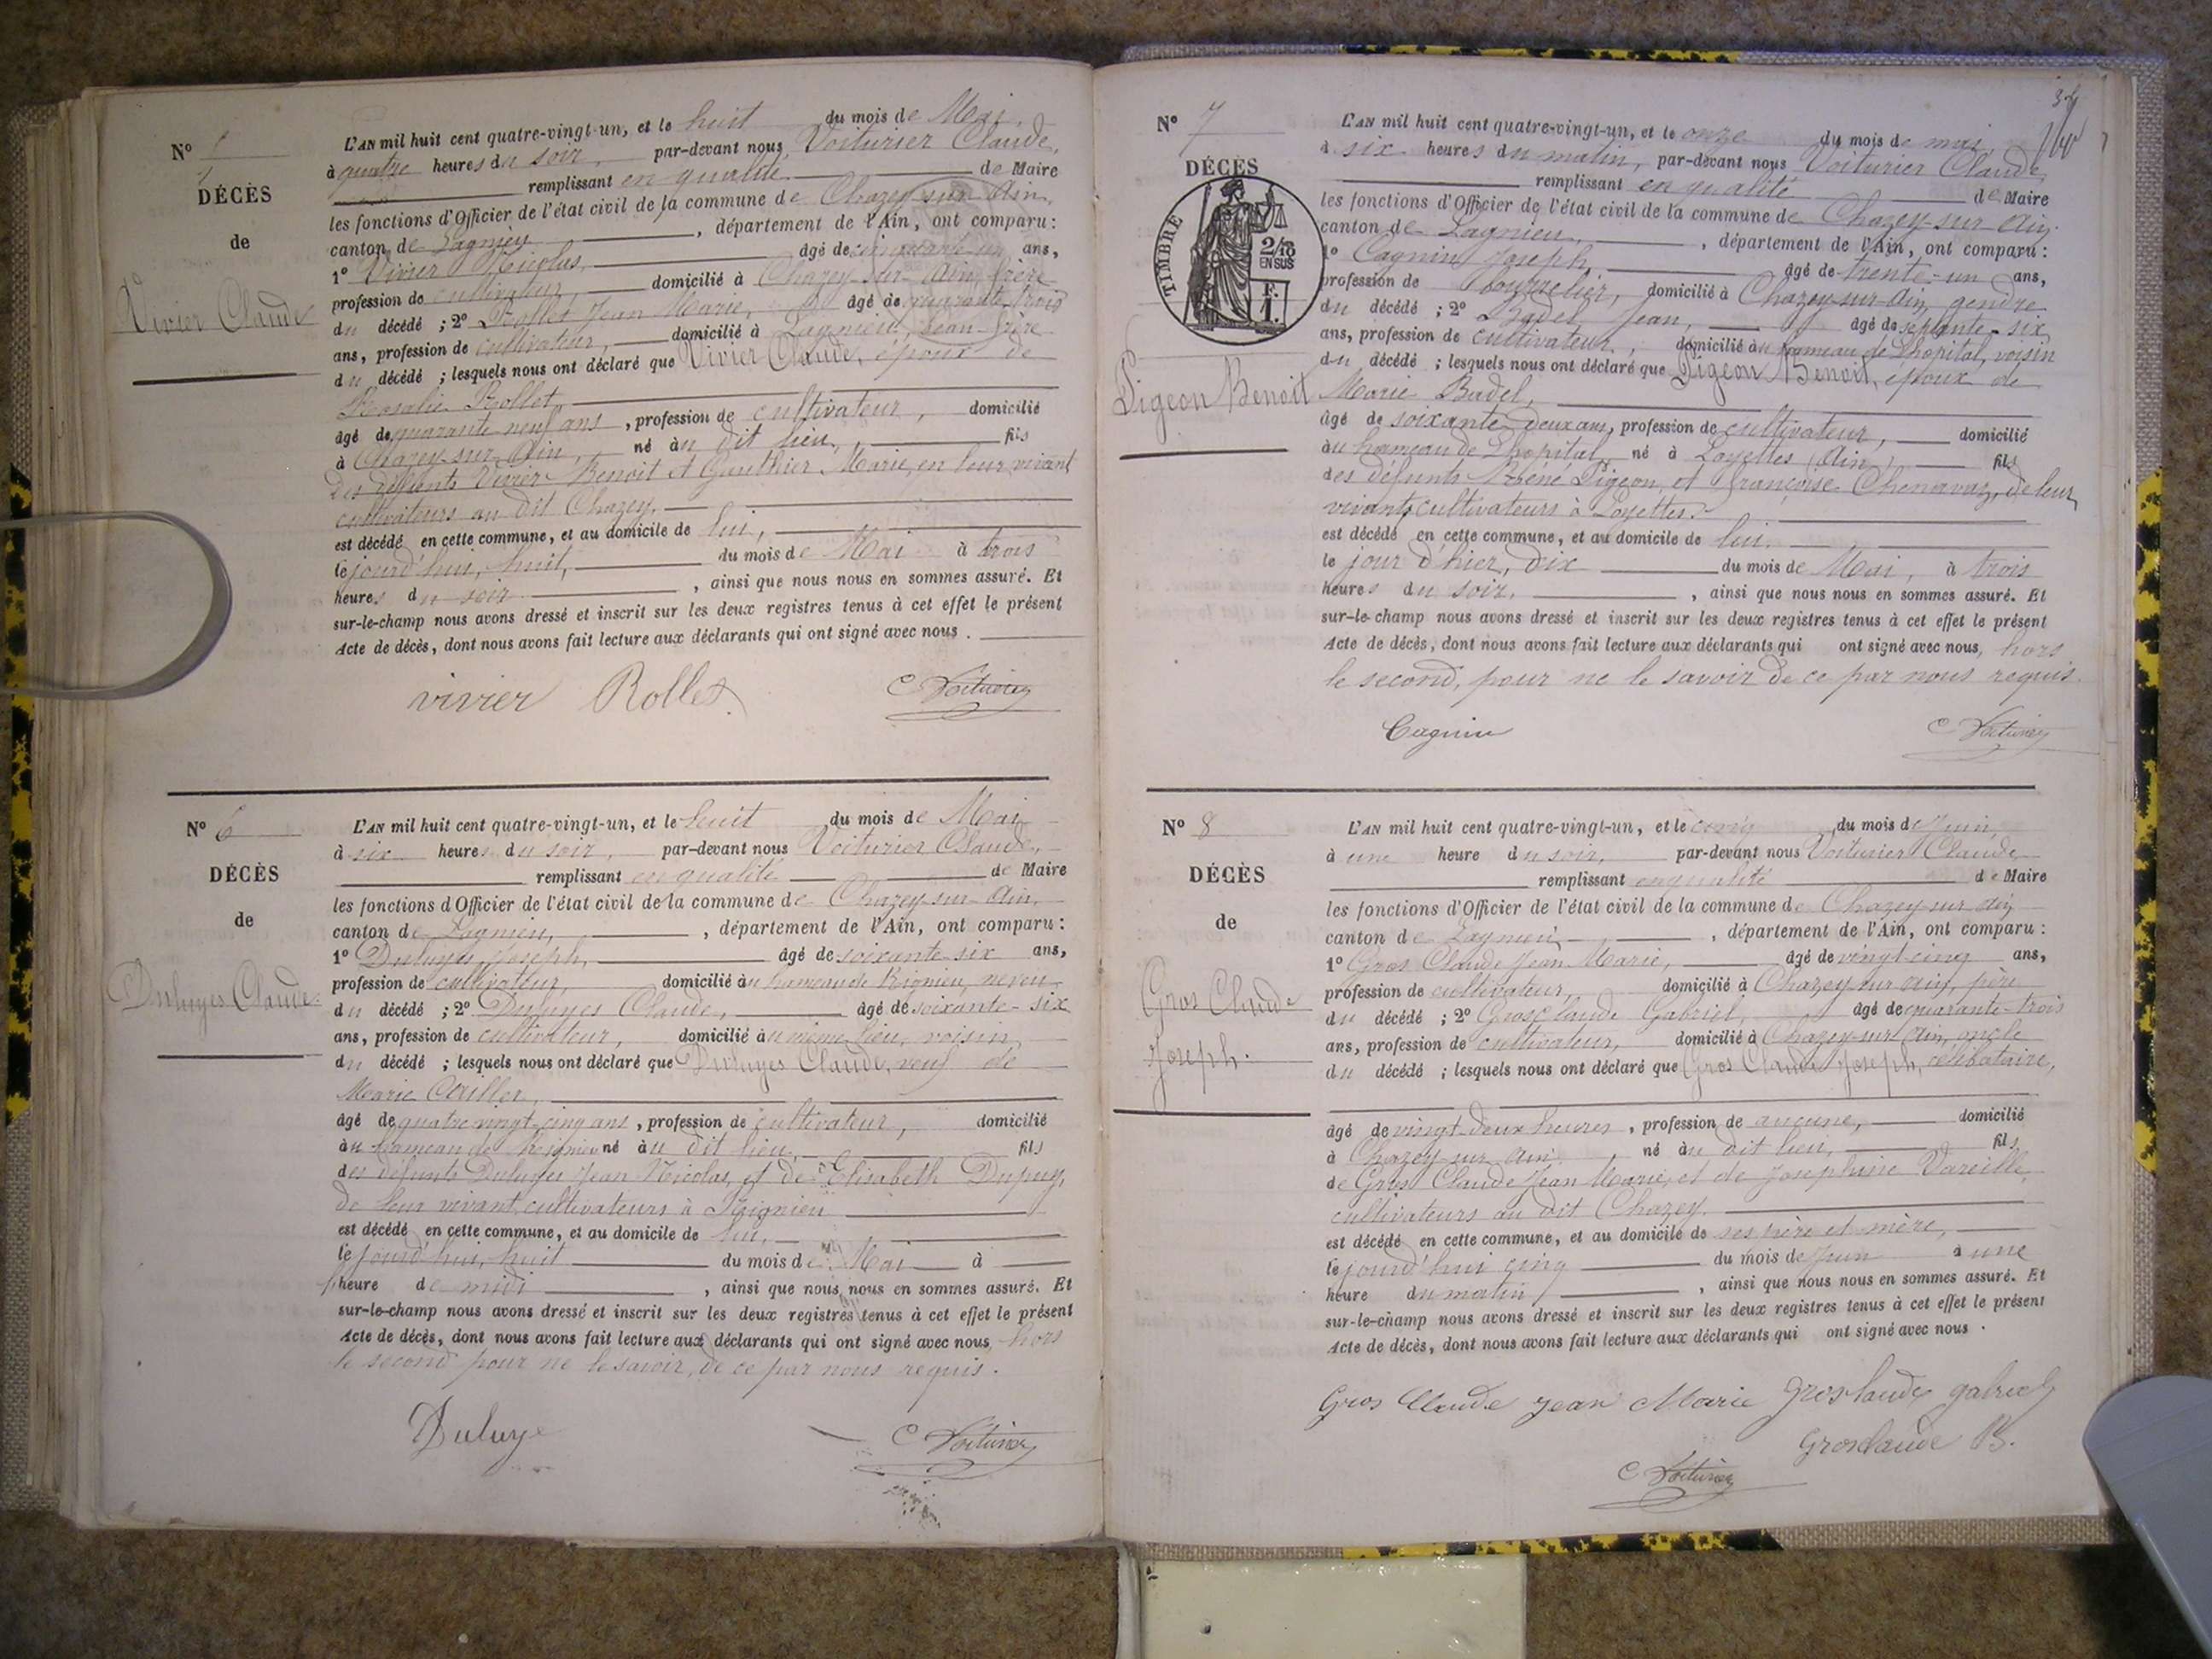 Nº 5
DÉCÈS
de
Vivier Claude
L'AN mil huit cent quatre-vingt-un, et le huit du mois de Mai,
à quatre heures du soir, par-devant nous Voiturier Claude,
remplissant en qualité de Maire
les fonctions d'Officier de l'état civil de la commune de Chazey-sur-Ain,
canton de Lagnieu, département de l'Ain, ont comparu :
1º Vivier Nicolas, âgé de cinquante un ans,
profession de cultivateur domicilié à Chazey-sur-Ain, frère
du décédé ; 2º Rollet Jean Marie, âgé de quarante trois
ans, profession de cultivateur, domicilié à Lagnieu, beau-frère
du décédé ; lesquels nous ont déclaré que Vivier Claude, époux de
Rosalie Rollet,
âgé de quarante neuf ans, profession de cultivateur, domicilié
à Chazey-sur-Ain, né au dit lieu, fils
des défunts Vivier Benoit et Gauthier Marie, en leur vivant
cultivateurs au dit Chazey,
est décédé en cette commune, et au domicile de lui,
le jourd'hui, huit, du mois de Mai à trois
heures du soir, ainsi que nous nous en sommes assuré. Et
sur-le-champ nous avons dressé et inscrit sur les deux registres tenus à cet effet le présent
Acte de décès, dont nous avons fait lecture aux déclarants qui ont signé avec nous.
vivier Rollet C Voiturier
Nº 6
DÉCÈS
de
Duluyes Claude
L'AN mil huit cent quatre-vingt-un, et le huit du mois de Mai
à six heures du soir, par-devant nous Voiturier Claude,
remplissant en qualité de Maire
les fonctions d'Officier de l'état civil de la commune de Chazey-sur-Ain,
canton de Lagnieu, département de l'Ain, ont comparu :
1º Duluyes Joseph, âgé de soixante-six ans,
profession de cultivateur, domicilié au hameau de Rignieu, neveu
du décédé ; 2º Duluyes Claude, âgé de soixante-six
ans, profession de cultivateur, domicilié au même lieu, voisin
du décédé ; lesquels nous ont déclaré que Duluyes Claude, veuf de
Marie
âgé de quatre-vingt-cinq ans, profession de cultivateur, domicilié
au hameau de Rignieu né au dit lieu, fils
des défunts Duluyes Jean Nicolas, et de Elisabeth Dupuy,
de leur vivant, cultivateurs à Rignieu
est décédé en cette commune, et au domicile de lui,
le jourd'hui, huit du mois de Mai à
heure de midi, ainsi que nous nous en sommes assuré. Et
sur-le-champ nous avons dressé et inscrit sur les deux registres tenus à cet effet le présent
Acte de décès, dont nous avons fait lecture aux déclarants qui ont signé avec nous hors
le second pour ne le savoir, de ce par nous requis.
Duluye C Voiturier
Nº 7
DÉCÈS
TIMBRE
2/10
EN SUS
F.
1.
Pigeon Benoit
L'AN mil huit cent quatre-vingt-un, et le onze du mois de mai,
à six heures du matin, par-devant nous Voiturier Claude,
remplissant en qualité de Maire
les fonctions d'Officier de l'état civil de la commune de Chazey-sur-Ain,
canton de Lagnieu, département de l'Ain, ont comparu :
1º Cagnin Joseph, âgé de trente-un ans,
profession de Bourrelier, domicilié à Chazey-sur-Ain, gendre
du décédé ; 2º Badel Jean, âgé de septante-six
ans, profession de cultivateur, domicilié au hameau de Lhopital, voisin
du décédé ; lesquels nous ont déclaré que Pigeon Benoit, époux de
Marie Badel,
âgé de soixante-deux ans, profession de cultivateur, domicilié
au hameau de Lhopital, né à Loyettes (Ain) fils
des défunts Réné Pigeon, et Françoise Chenavaz, de leur
vivants cultivateurs à Loyettes.
est décédé en cette commune, et au domicile de lui.
le jour d'hier, dix du mois de Mai, à trois
heures du soir, ainsi que nous nous en sommes assuré. Et
sur-le-champ nous avons dressé et inscrit sur les deux registres tenus à cet effet le présent
Acte de décès, dont nous avons fait lecture aux déclarants qui ont signé avec nous, hors
le second, pour ne le savoir de ce par nous requis.
Cagnin C Voiturier
Nº 8
DÉCÈS
de
Gros Claude
Joseph.
L'AN mil huit cent quatre-vingt-un, et le cinq du mois de Juin,
à une heure du soir, par-devant nous Voiturier Claude
remplissant en qualité de Maire
les fonctions d'Officier de l'état civil de la commune de Chazey-sur-Ain,
canton de Lagnieu, département de l'Ain, ont comparu :
1º Gros Claude Jean Marie, âgé de vingt-cinq ans,
profession de cultivateur, domicilié à Chazey-sur-Ain, père
du décédé ; 2º Grosclaude Gabriel, âgé de quarante-trois
ans, profession de cultivateur, domicilié à Chazey-sur-Ain, oncle
du décédé ; lesquels nous ont déclaré que Gros Claude Joseph, célibataire,
âgé de vingt-deux heures, profession de aucune, domicilié
à Chazey-sur-Ain né au dit lieu, fils
de Gros Claude Jean Marie, et de Josephine Vareille,
cultivateurs au dit Chazey.
est décédé en cette commune, et au domicile de ses père et mère,
le jourd'hui cinq du mois de Juin à une
heure du matin, ainsi que nous nous en sommes assuré. Et
sur-le-champ nous avons dressé et inscrit sur les deux registres tenus à cet effet le présent
Acte de décès, dont nous avons fait lecture aux déclarants qui ont signé avec nous.
Gros Claude Jean Marie Grosclaude gabriel
Grosclaude B.
C Voiturier